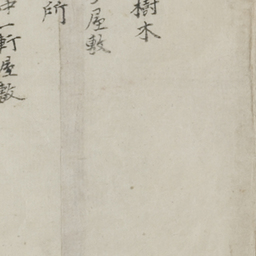 樹木
屋敷
所
一軒屋敷